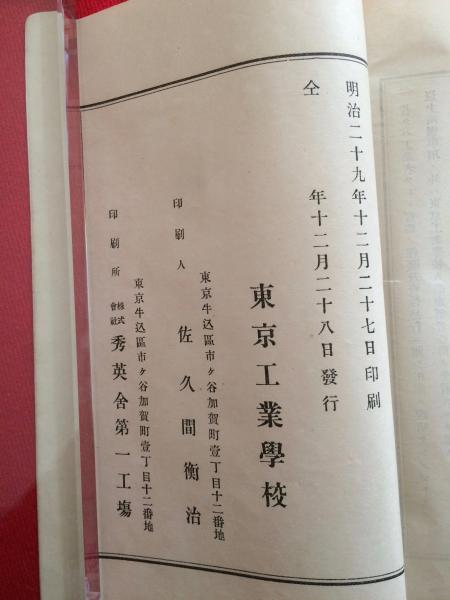 明治二十九年十二月二十七日印刷
仝年十二月二十八日發行
東京工業學校
東京牛込區市ヶ谷加賀町壹丁目十二番地
印刷人 佐久間衡治
東京牛込區市ヶ谷加賀町壹丁目十二番地
印刷所 株式會社 秀英舍第一工塲